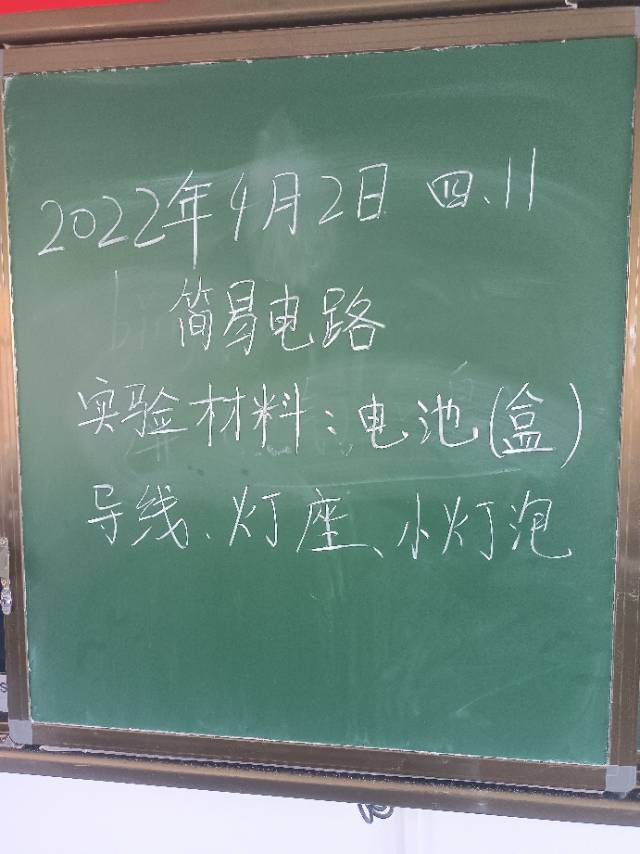 2022年4月2日 四.11
简易电路
实验材料:电池(盒)
导线、灯座、小灯泡